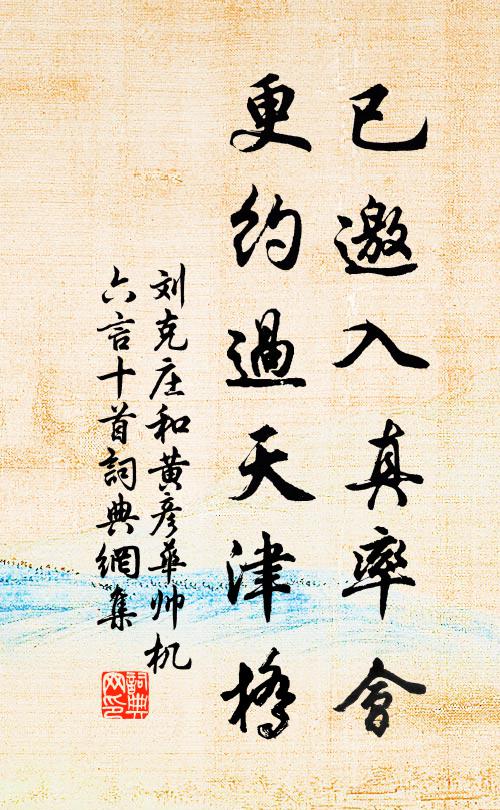 已邀入真率會
更約過天津橋
刘克庄和黄彦華帅机
六言十首詞典網集
詞典网印